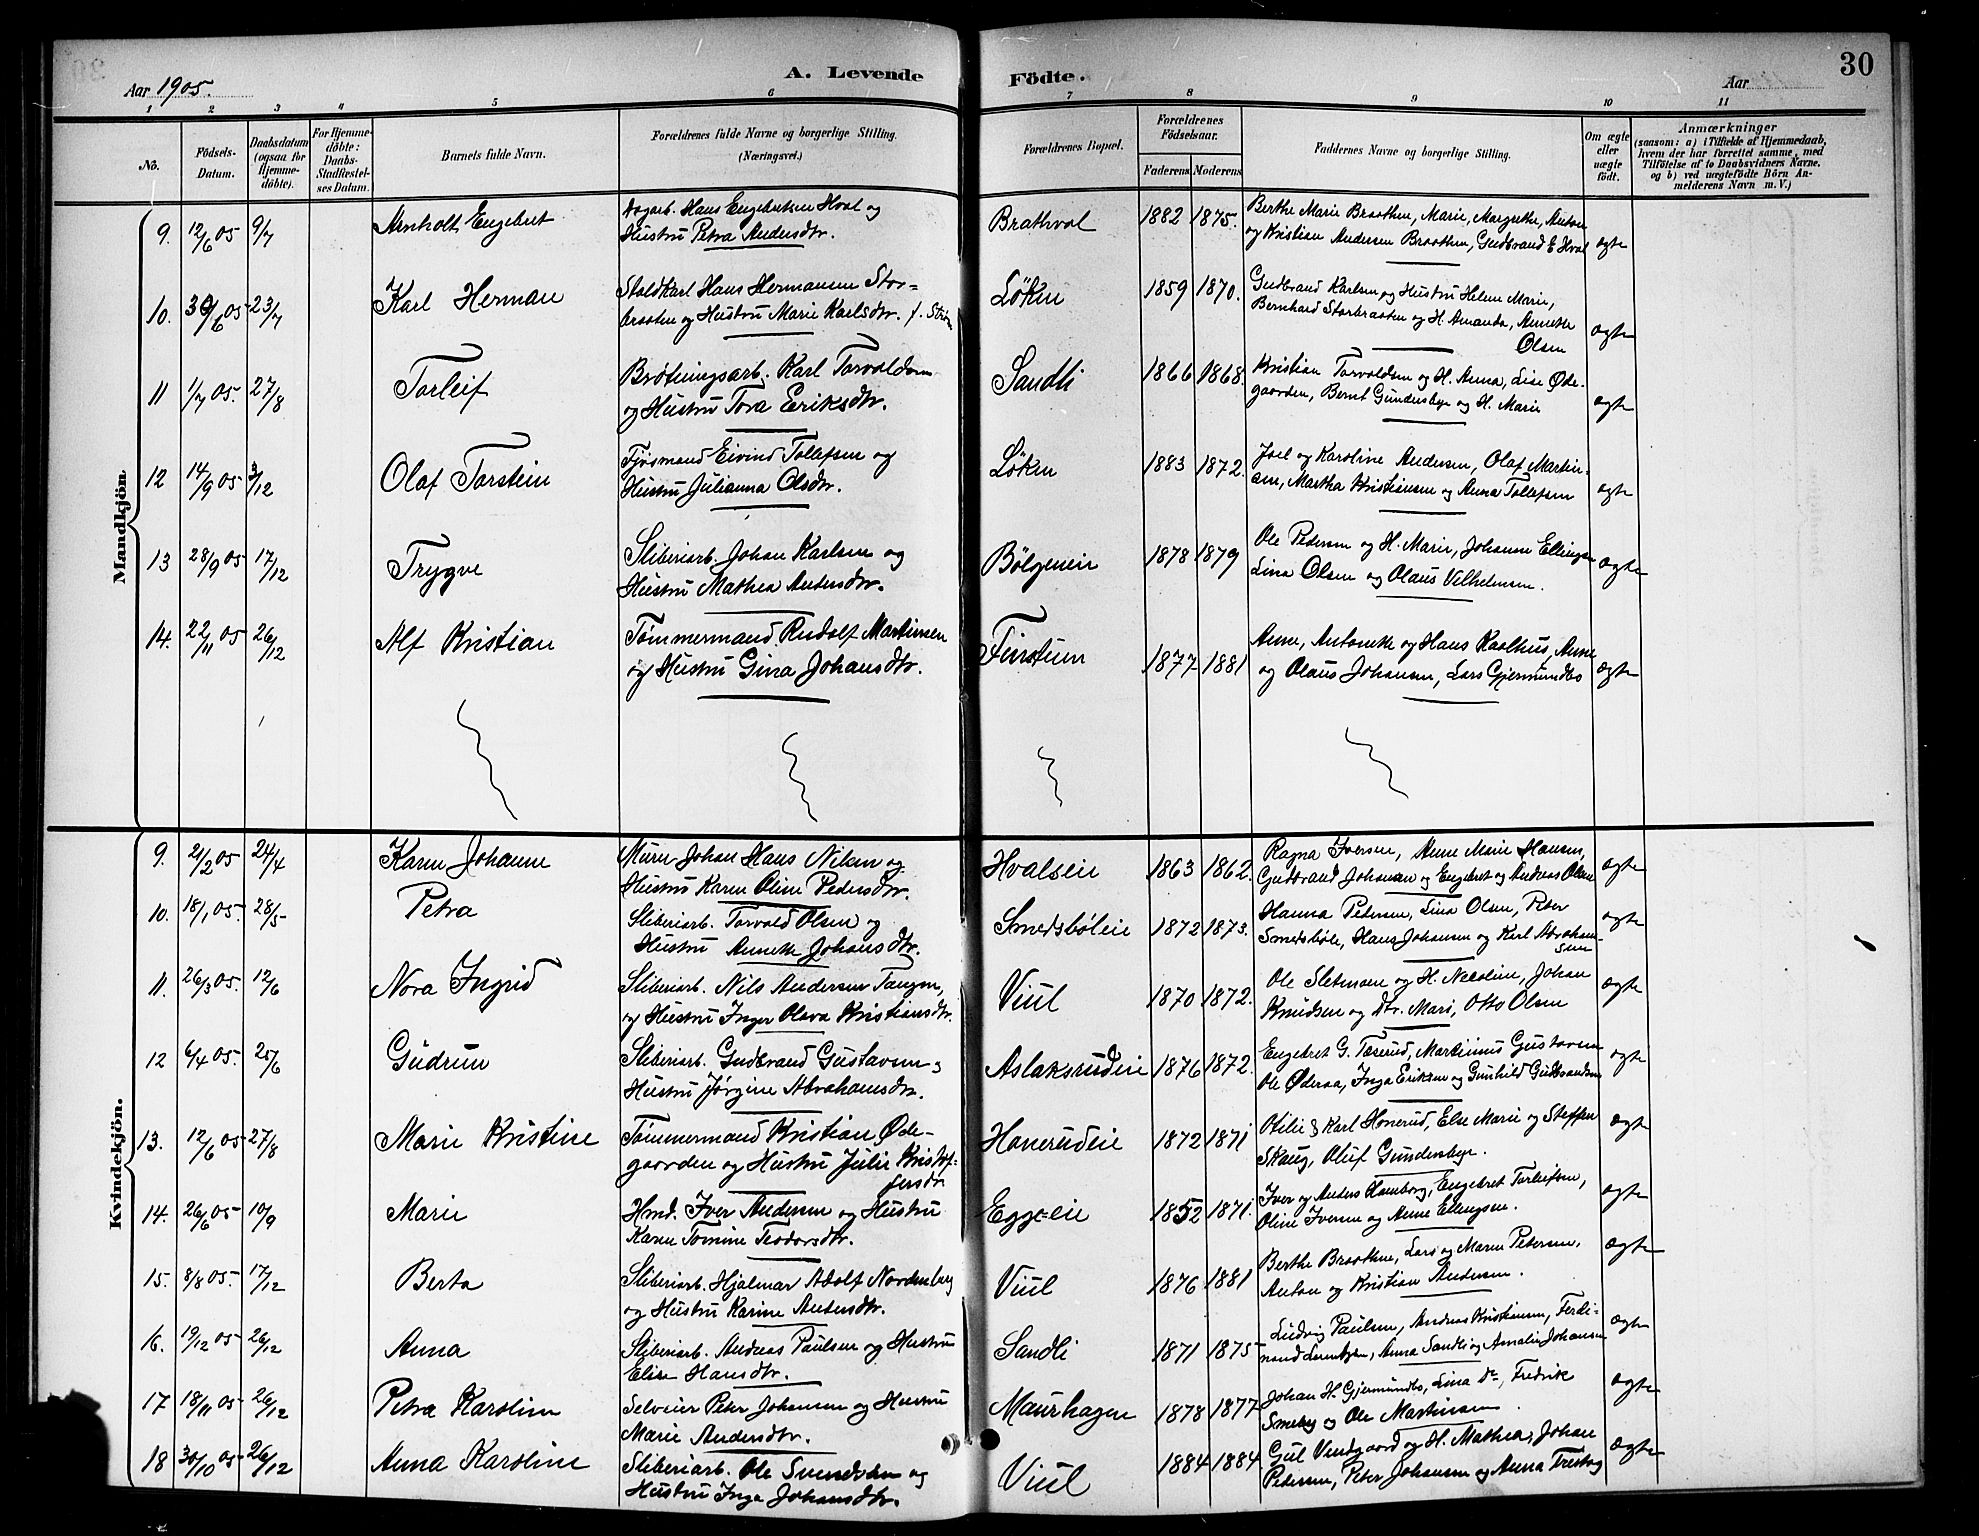 30
Aar 1905.
A. Levende Födte.
Aar
1 2 3 4 5 6 7 8 9 10 11
No.
Födsels-Datum.
Daabsdatum (ogsaa for Hjemme-döbte).
For Hjemme-döbte: Daabs-Stadfæstel-ses Datum.
Barnets fulde Navn.
Forældrenes fulde Navne og borgerlige Stilling. (Næringsvei.)
Forældrenes Bopæl.
Forældrenes Födselsaar.
Faderens Moderens
Faddernes Navne og borgerlige Stilling.
Om ægte eller uægte födt.
Anmærkninger
(saasom: a) i Tilfælde af Hjemmedaab, hvem der har forrettet samme, med Tilföielse af to Daabsvidners Navne. og b) ved uægtefödte Börn Anmelderens Navn m. V.)
Mandkjön.
9. 12/6 05 9/7 Arnholt Engebret
Dagarb. Hans Engebretsen Hval og
Hustru Petra Andersdtr.
Brathval 1882 1875.
Berthe Marie Braathen, Marie, Margrethe, Anton
og Kristian Andersen Braathen, Gudbrand E. Hval ægte
10. 30/6 05 23/7 Karl Herman
Staldkarl Hans Hermansen Stor-
braaten og Hustru Marie Karlsdtr. f. Strøm
Løken 1859 1870.
Gudbrand Karlsen og Hustru Helene Marie,
Bernhard Storbraaten og H. Amanda, Annette
Olsen ægte
11 1/7 05. 27/8 Torleif
Brötningsarb. Karl Torvaldsen
og Hustru Tora Eriksdtr.
Sandli 1866 1868.
Kristian Torvaldsen og H. Anna, Lise Øde-
gaarden, Bernt Gundersbye og H. Marie ægte
12 14/9 05 3/12 Olaf Torstein
Fjøsmand Eivind Tollefsen og
Hustru Julianna Olsdtr.
Løken 1883 1872.
Joel og Karoline Andersen, Olaf Martin-
sen, Martha Kristiansen og Anna Tollefsen ægte
13 28/9 05 17/12 Trygve
Sliberiarb. Johan Karlsen og
Hustru Mathea Andersdtr.
Bölgeneie 1878 1879
Ole Pedersen og H. Marie, Johanne Ellingsen
Lina Olsen og Olaus Vilhelmsen. ægte
14. 22/11 05 26/12 Alf Kristian
Tömmermand Rudolf Martinsen
og Hustru Gina Johansdtr.
Finstum 1877 1881
Anne, Antonette og Hans Kaalhus, Anne
og Olaus Johansen, Lars Gjermundbo ægte
Kvindekjön.
9. 21/2 05 24/4 Karen Johanne
Murer Johan Hans Nilsen og
Hustru Karen Oline Pedersdtr.
Hvalseie 1863 1862.
Ragna Iversen, Anne Marie Hansen,
Gudbrand Johansen og Engebret og Andreas Olsen ægte
10. 18/1 05. 28/5 Petra
Sliberiarb. Torvald Olsen og
Hustru Annette Johansdtr.
Smedsböleie 1872 1873.
Hanna Petersen, Lina Olsen, Peter
Smedsböle, Hans Johansen og Karl Abraham-
sen ægte
11. 26/3 05. 12/6 Nora Ingrid
Sliberiarb. Nils Andersen Tangen,
og Hustru Inger Olava Kristiansdtr.
Viul 1870 1872.
Ole Sletmoen og H. Nicoline, Johan
Knudsen og Dtr. Mari, Otto Olsen ægte
12 6/4 05. 25/6 Gudrun
Sliberiarb. Gudbrand Gustavsen og
Hustru Jørgine Abrahamsdtr.
Aslaksrudeie 1876 1872.
Engebret G. Tæserud, Martinius Gustavsen
Ole Øderaa, Inga Eriksen og Gunhild Gudbrandsen ægte
13. 12/6 05 27/8 Marie Kristine
Tömmermand Kristian Øde-
gaarden og Hustru Julie Kristof-
fersdtr
Honerudeie 1872 1871
Otilie & Karl Honerud, Else Marie og Steffen
Skaug, Oluf Gundersbye. ægte
14. 26/6 05 10/9 Marie
Hmd. Iver Andersen og Hustru
Karen Tomine Teodorsdtr.
Eggeeie 1852 1871.
Iver og Anders Ramborg, Engebret Torleifsen,
Oline Iversen og Anne Ellingsen. ægte
15. 8/8 05. 17/12 Berta
Sliberiarb. Hjalmar Adolf Nordenborg
og Hustru Karine Andersdtr.
Viul 1876 1881
Berthe Braathen, Lars og Maren Petersen,
Anton og Kristian Andersen. ægte
16. 19/12 05 26/12 Anna
Sliberiarb. Andreas Paulsen og Hustru
Elise Hansdtr.
Sandli 1871 1875
Ludvig Paulsen, Andreas Kristiansen, Ferdi-
nand, Anna Sandli og Amalie Johansen ægte
17 18/11 05 26/12 Petra Karoline
Selveier Peter Johansen og Hustru
Marie Andersdtr.
Maurhagen 1878 1877
Johan H. Gjermundbo, Lina Do, Fredrik
Smeby og Ole Martinsen. ægte
18 30/10 05 26/12 Anna Karoline
Sliberiarb. Ole Svendsen og
Hustru Inga Johansdtr.
Viul 1884 1884
Gul Vendgaard og H. Mathea, Johan
Pedersen, Peter Johansen og Anna ægte